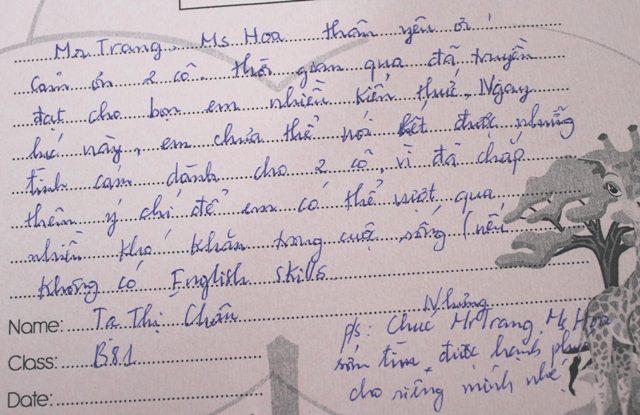 Mr Trang, Ms Hoa thân yêu ơi!
Cảm ơn 2 cô. thời gian qua đã truyền
đạt cho bọn em nhiều kiến thức. Ngay
lúc này, em chưa thể nói hết được những
tình cảm dành cho 2 cô, vì đã chắp
thêm ý chí để em có thể vượt qua
nhiều khó khăn trong cuộc sống (nếu
không có English skills
Name: Tạ Thị Chân
Class: B81
Date:
Nhưng
p/s: Chúc Mr Trang, Ms Hoa
sớm tìm được hạnh phúc
cho riêng mình nhé!